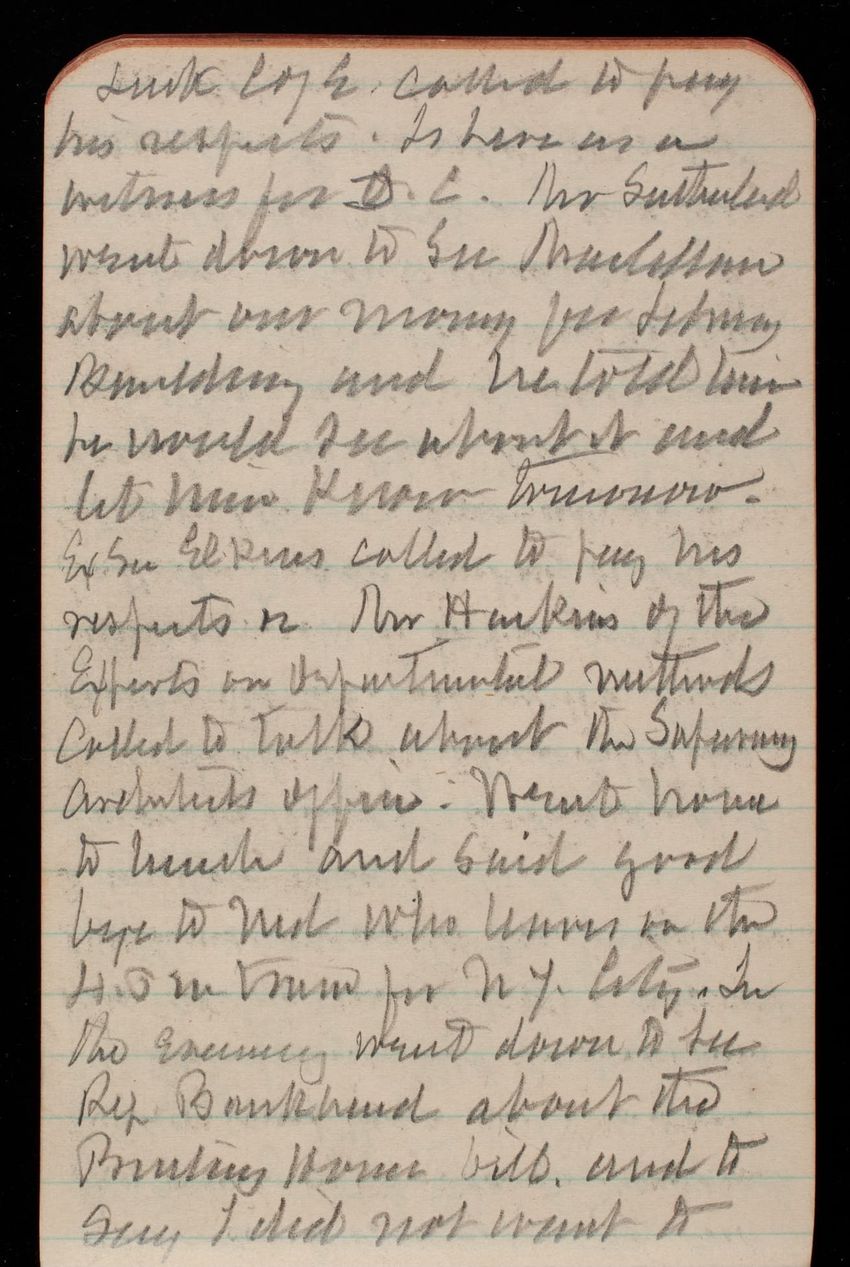 Lusk C of E. called to pay
his respects. Is here as a
witness for D.C. Mr Sutherland
went down to see
about our money for Library
Building and he told him
he would see about it and
let him know tomorrow.
Ex Sec Elkins called to pay his
respects Mr Haskins of the
Experts on departmental methods
called to talk about the Supervising
Architects office. Went home
to lunch and said good
bye to Ned who leaves on the
train for N Y. City. In
the Evening went down to see
Rep Bankhead about the
Printing House bill. and to
say I did not want to